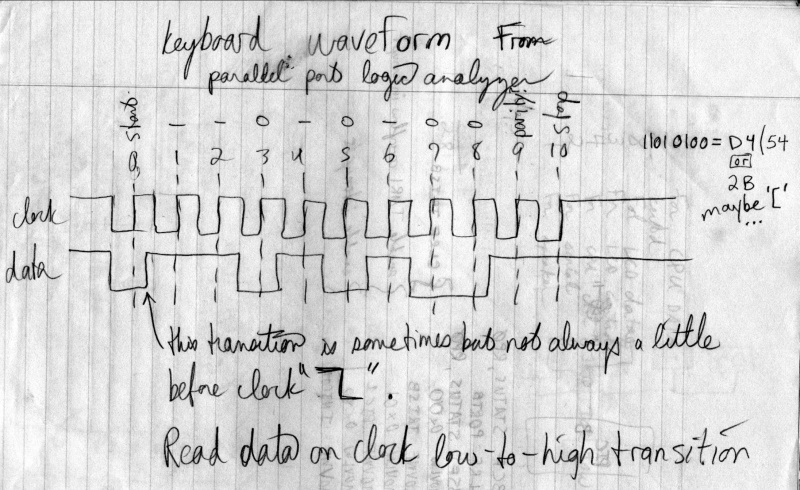 keyboard waveform From
parallel port logic analyzer
start 1 1 0 1 0 1 0 0 parity stop
0 1 2 3 4 5 6 7 8 9 10
11010100 = D4/54
or
2B
maybe '['
...
clock
data
this transition is sometimes but not always a little
before clock " ".
Read data on clock low-to-high transition